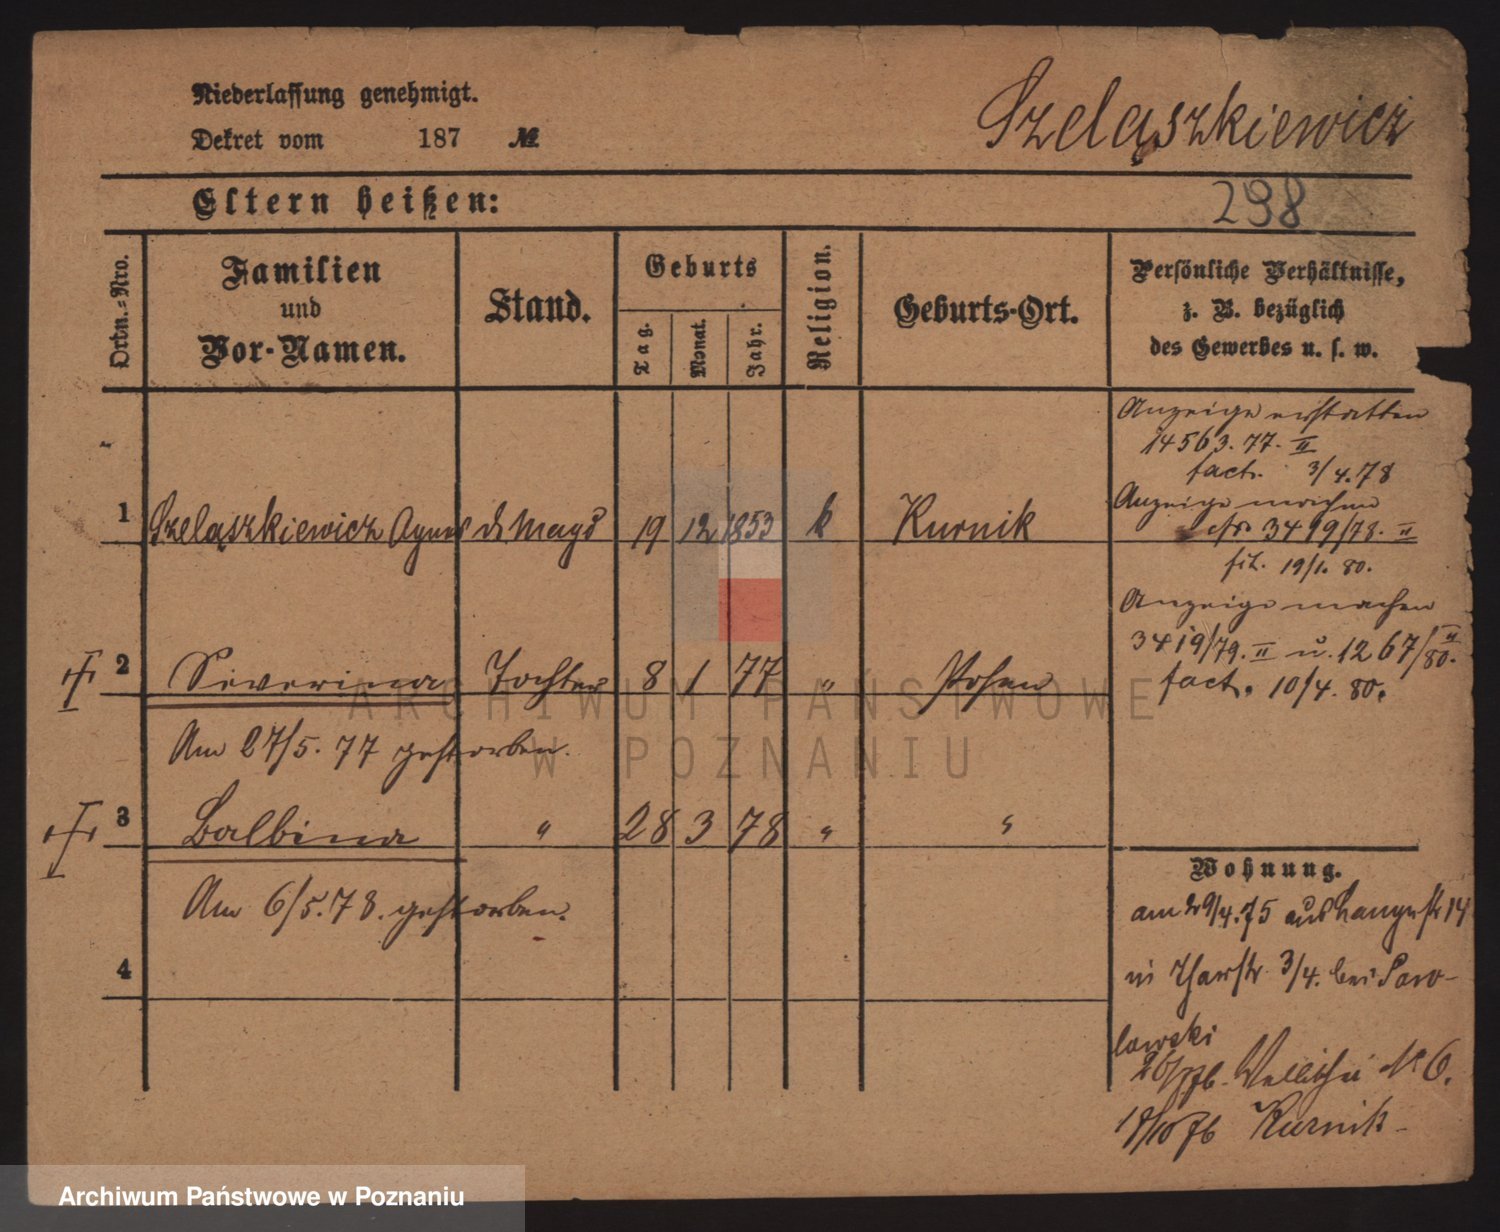 Niederlassung genehmigt.
Dekret vom 187 №
Szelążkiewicz
Eltern heißen:
298
Ordn.-Nro.
Familien
und
Vor-Namen.
Stand.
Geburts
Tag.
Monat.
Jahr.
Religion.
Geburts-Ort.
Persönliche Verhältnisse,
z. B. bezüglich
des Gewerbes u. s. w.
Anzeige erstatten
14563. 77. II
fact. 3/4. 78
1 Szeląszkiewicz Agnes d. Magd 19 12 1853 k Kurnik
Anzeige machen
3419/78. II
19/1. 80.
Anzeige machen
3419/79. II u. 1267/80. II
fact. 10/4. 80.
2 Severina Tochter 8 1 77 " Posen
Am 27/5. 77 gestorben.
3 Balbina " 28 3 78 " "
Am 6/5. 78. gestorben.
4
Wohnung.
am 29/4. 75 aus Langestr 14
in 3/4. bei
lowski
Wallischei № 6.
Kurnik
ARCHIWUM PAŃSTWOWE
W POZNANIU
Archiwum Państwowe w Poznaniu